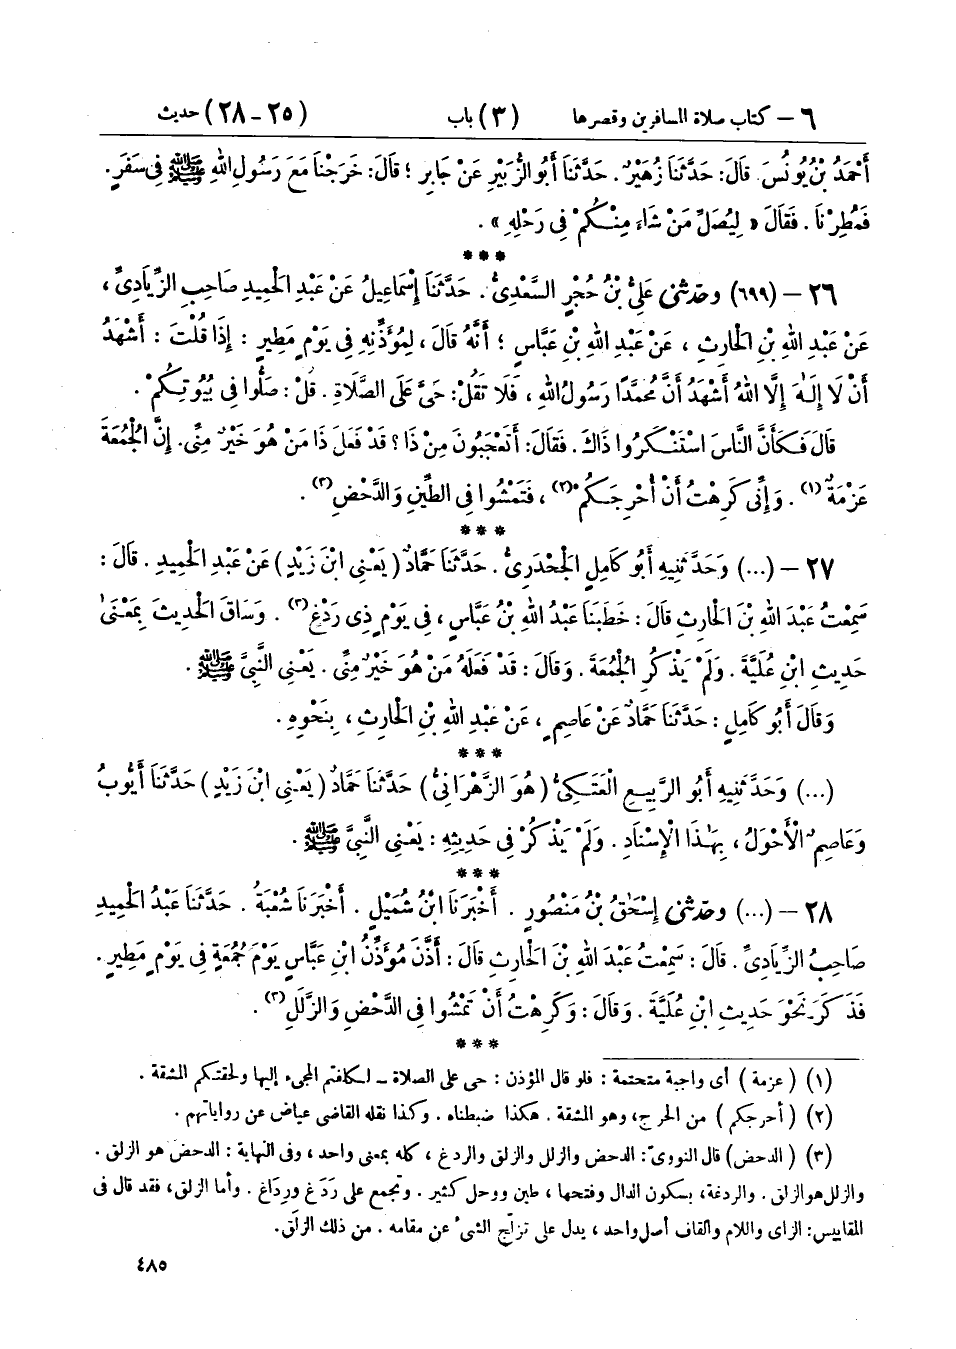 ٦ – كتاب صلاة المسافرين وقصرها (٣) باب (٢٥ – ٢٨) حديث
أَحْمَدُ بْنُ يُونُسَ. قَالَ: حَدَّثَنَا زُهَيْرٌ. حَدَّثَنَا أَبُو الزُّبَيْرِ عَنْ جَابِرٍ ؛ قَالَ: خَرَجْنَا مَعَ رَسُولِ اللهِ ﷺ فِي سَفَرٍ.
فَمُطِرْنَا. فَقَالَ « لِيُصَلِّ مَنْ شَاءَ مِنْكُمْ فِي رَحْلِهِ ».
***
٢٦ – (٦٩٩) وحدثنى عَلِيُّ بْنُ حُجْرٍ السَّعْدِيُّ. حَدَّثَنَا إِسْمَاعِيلُ عَنْ عَبْدِ الْحَمِيدِ صَاحِبِ الزِّيَادِيِّ ،
عَنْ عَبْدِ اللهِ بْنِ الْحَارِثِ ، عَنْ عَبْدِ اللهِ بْنِ عَبَّاسٍ ؛ أَنَّهُ قَالَ ، لِمُؤَذِّنِهِ فِي يَوْمٍ مَطِيرٍ : إِذَا قُلْتَ : أَشْهَدُ
أَنْ لَا إِلَهَ إِلَّا اللهُ أَشْهَدُ أَنَّ مُحَمَّدًا رَسُولُ اللهِ ، فَلَا تَقُلْ: حَيَّ عَلَى الصَّلَاةِ . قُلْ: صَلُّوا فِي بُيُوتِكُمْ .
قَالَ فَكَأَنَّ النَّاسَ اسْتَنْكَرُوا ذَاكَ. فَقَالَ: أَتَعْجَبُونَ مِنْ ذَا ؟ قَدْ فَعَلَ ذَا مَنْ هُوَ خَيْرٌ مِنِّي. إِنَّ الْجُمُعَةَ
عَزْمَةٌ (١) . وَإِنِّي كَرِهْتُ أَنْ أُحْرِجَكُمْ (٢) ، فَتَمْشُوا فِي الطِّينِ وَالدَّحْضِ (٣) .
***
٢٧ – (...) وَحَدَّثَنِيهِ أَبُو كَامِلٍ الْجَحْدَرِيُّ. حَدَّثَنَا حَمَّادٌ ( يَعْنِي ابْنَ زَيْدٍ ) عَنْ عَبْدِ الْحَمِيدِ . قَالَ :
سَمِعْتُ عَبْدَ اللهِ بْنَ الْحَارِثِ قَالَ : خَطَبَنَا عَبْدُ اللهِ بْنُ عَبَّاسٍ ، فِي يَوْمٍ ذِي رَدْغٍ (٣) . وَسَاقَ الْحَدِيثَ بِمَعْنَى
حَدِيثِ ابْنِ عُلَيَّةَ . وَلَمْ يَذْكُرِ الْجُمُعَةَ . وَقَالَ : قَدْ فَعَلَهُ مَنْ هُوَ خَيْرٌ مِنِّي . يَعْنِي النَّبِيَّ ﷺ .
وَقَالَ أَبُو كَامِلٍ : حَدَّثَنَا حَمَّادٌ عَنْ عَاصِمٍ ، عَنْ عَبْدِ اللهِ بْنِ الْحَارِثِ ، بِنَحْوِهِ .
***
(...) وَحَدَّثَنِيهِ أَبُو الرَّبِيعِ الْعَتَكِيُّ ( هُوَ الزَّهْرَانِيُّ ) حَدَّثَنَا حَمَّادٌ ( يَعْنِي ابْنَ زَيْدٍ ) حَدَّثَنَا أَيُّوبُ
وَعَاصِمٌ الْأَحْوَلُ ، بِهَذَا الْإِسْنَادِ . وَلَمْ يَذْكُرْ فِي حَدِيثِهِ : يَعْنِي النَّبِيَّ ﷺ .
***
٢٨ – (...) وحدثنى إِسْحَقُ بْنُ مَنْصُورٍ . أَخْبَرَنَا ابْنُ شُمَيْلٍ . أَخْبَرَنَا شُعْبَةُ . حَدَّثَنَا عَبْدُ الْحَمِيدِ
صَاحِبُ الزِّيَادِيِّ . قَالَ : سَمِعْتُ عَبْدَ اللهِ بْنَ الْحَارِثِ قَالَ : أَذَّنَ مُؤَذِّنُ ابْنِ عَبَّاسٍ يَوْمَ جُمُعَةٍ فِي يَوْمٍ مَطِيرٍ .
فَذَكَرَ نَحْوَ حَدِيثِ ابْنِ عُلَيَّةَ . وَقَالَ : وَكَرِهْتُ أَنْ تَمْشُوا فِي الدَّحْضِ وَالزَّلَلِ (٣) .
***
(١) ( عزمة ) أى واجبة متحتمة : فلو قال المؤذن : حى على الصلاة – لكافتم المجىء إليها ولحقتكم المشقة .
(٢) ( أحرجكم ) من الحرج، وهو المشقة . هكذا ضبطناه . وكذا نقله القاضى عياض عن رواياتهم .
(٣) ( الدحض) قال النووىّ: الدحض والزلل والزلق والردغ ، كله بمعنى واحد ، وفى النهاية : الدحض هو الزلق .
والزلل هو الزلق . والردغة، بسكون الدال وفتحها ، طين ووحل كثير . وتجمع على رَدَغ ورِدَاغ . وأما الزلق، فقد قال فى
المقاييس: الزاى واللام والقاف أصل واحد ، يدل على تزلّج الشىء عن مقامه . من ذلك الزلَق.
٤٨٥